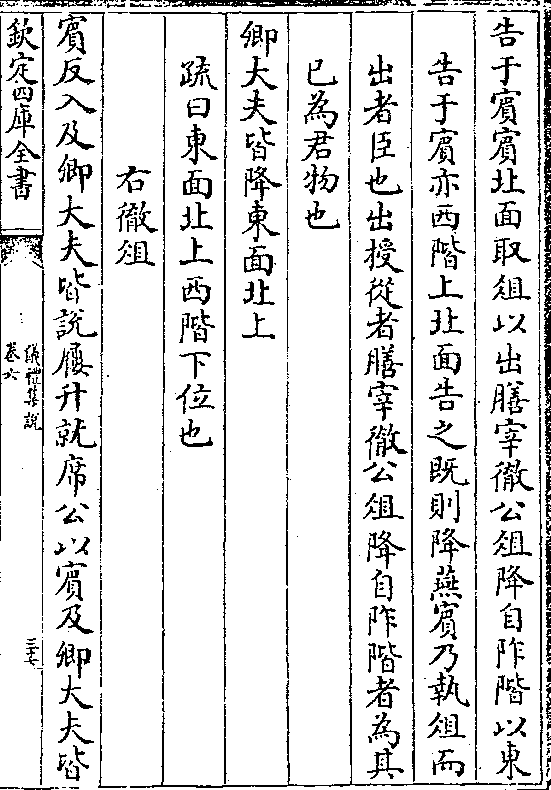 告于賓賓北面取俎以出膳宰徹公俎降自阼階以東
告于賓亦西階上北面告之既則降燕賓乃執俎而
出者臣也出授從者膳宰徹公俎降自阼階者為其
已為君物也
卿大夫皆降東面北上
疏曰東面北上西階下位也
右徹俎
賓反入及卿大夫皆說屨升就席公以賓及卿大夫皆
欽定四庫全書
儀禮集說
卷六